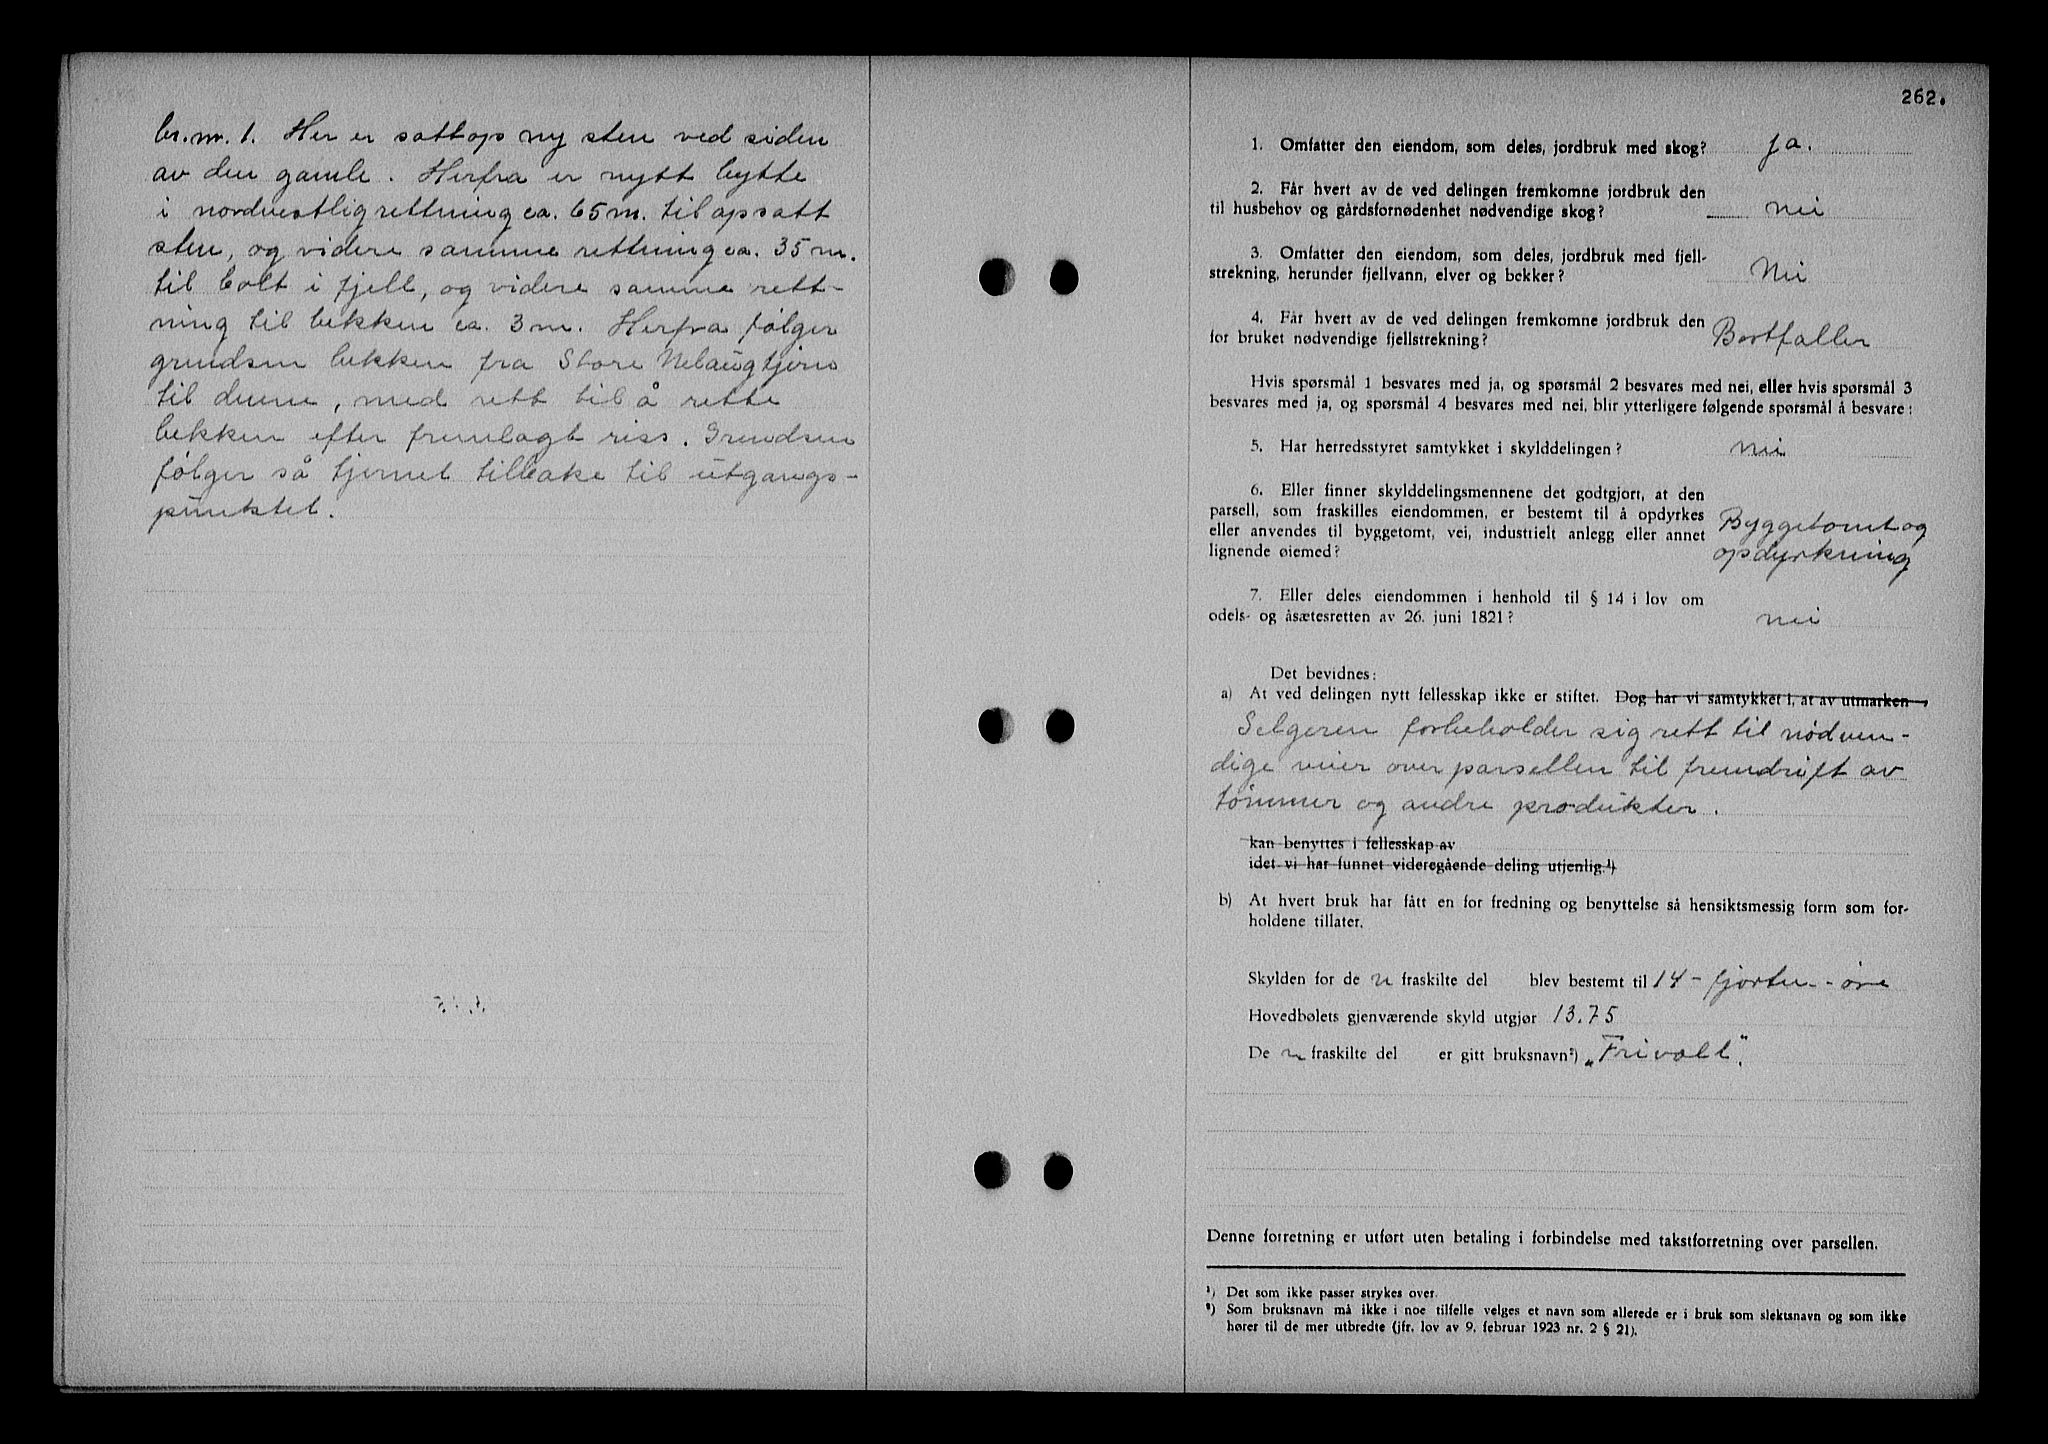 br.nr. 1. Her er satt op ny sten ved siden
av den gamle. Herfra er nytt bytte
i nordvestlig rettning ca. 65 m. til opsatt
sten, og videre samme rettning ca. 35 m.
til bolt i fjell, og videre samme rett-
ning til bekken ca. 3 m. Herfra følger
grendsen bekken fra Store Nelaugtjern
til denne, med rett til å rette
bekken efter fremlagt riss. Grendsen
følger så tjernet tilbake til utgangs-
punktet.
262.
1. Omfatter den eiendom, som deles, jordbruk med skog? ja.
2. Får hvert av de ved delingen fremkomne jordbruk den
til husbehov og gårdsfornødenhet nødvendige skog? nei
3. Omfatter den eiendom, som deles, jordbruk med fjell-
strekning, herunder fjellvann, elver og bekker? Nei
4. Får hvert av de ved delingen fremkomne jordbruk den
for bruket nødvendige fjellstrekning? Bortfaller
Hvis spørsmål 1 besvares med ja, og spørsmål 2 besvares med nei, eller hvis spørsmål 3
besvares med ja, og spørsmål 4 besvares med nei, blir ytterligere følgende spørsmål å besvare:
5. Har herredsstyret samtykket i skylddelingen? nei
6. Eller finner skylddelingsmennene det godtgjort, at den
parsell, som fraskilles eiendommen, er bestemt til å opdyrkes
eller anvendes til byggetomt, vei, industrielt anlegg eller annet
lignende øiemed? Byggetomt og
opdyrkning
7. Eller deles eiendommen i henhold til § 14 i lov om
odels- og åsætesretten av 26. juni 1821? nei
Det bevidnes:
a) At ved delingen nytt fellesskap ikke er stiftet. Dog har vi samtykket i, at av utmarken
Selgeren forbeholder sig rett til nødven-
dige veier over parsellen til fremdrift av
tømmer og andre produkter.
kan benyttes i fellesskap av
idet vi har funnet videregående deling utjenlig.¹)
b) At hvert bruk har fått en for fredning og benyttelse så hensiktsmessig form som for-
holdene tillater.
Skylden for de n fraskilte del blev bestemt til 14 - fjorten - øre
Hovedbølets gjenværende skyld utgjør 13.75
De n fraskilte del er gitt bruksnavn²) „Frivoll“.
Denne forretning er utført uten betaling i forbindelse med takstforretning over parsellen.
¹) Det som ikke passer strykes over.
²) Som bruksnavn må ikke i noe tilfelle velges et navn som allerede er i bruk som slektsnavn og som ikke
hører til de mer utbredte (jfr. lov av 9. februar 1923 nr. 2 § 21).